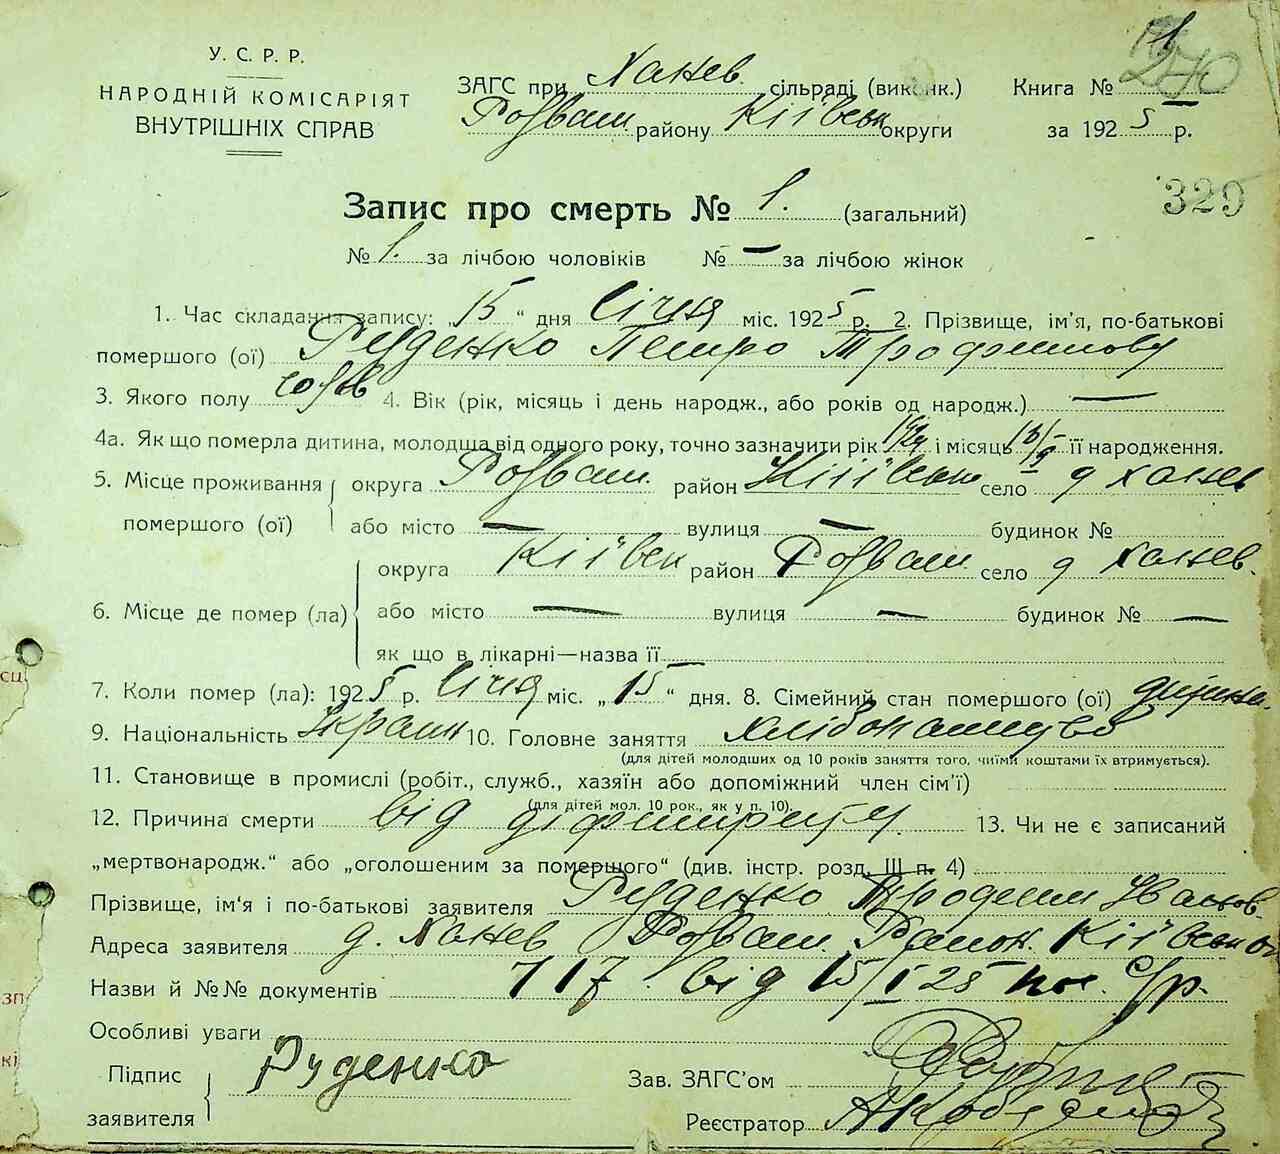 У. С. Р. Р.
НАРОДНІЙ КОМІСАРІЯТ
ВНУТРІШНІХ СПРАВ
ЗАГС при Ханев. сільраді (виконк.) Книга № 1
Розваж. району Кіївськ округи за 1925 р.
270
329
Запис про смерть № 1. (загальний)
№ 1. за лічбою чоловіків № — за лічбою жінок
1. Час складання запису: „15“ дня січня міс. 1925 р. 2. Прізвище, ім'я, по-батькові
помершого (ої) Руденко Петро Трофимову
3. Якого полу чолов 4. Вік (рік, місяць і день народж., або років од народж.) —
4а. Як що померла дитина, молодща від одного року, точно зазначити рік 1924 і місяць її народження.
5. Місце проживання помершого (ої) округа Розваж. район Кіївськ село д Ханев
або місто — вулиця — будинок №
6. Місце де помер (ла) округа Кіївськ район Розваж. село д Ханев.
або місто — вулиця — будинок № —
як що в лікарні—назва її —
7. Коли помер (ла): 1925 р. січня міс. „15“ дня. 8. Сімейний стан помершого (ої) дитина.
9. Національність Украін 10. Головне заняття хлібопашество
(для дітей молодших од 10 років заняття того, чиїми коштами їх втримується).
11. Становище в промислі (робіт., служб., хазяїн або допоміжний член сім'ї)
(для дітей мол. 10 рок., як у п. 10).
12. Причина смерти від дифтириту. 13. Чи не є записаний
„мертвонародж.“ або „оголошеним за помершого“ (див. інстр. розд. Ш п. 4)
Прізвище, ім'я і по-батькові заявителя Руденко Трофим Іванов.
Адреса заявителя д. Ханев Розваж. Район. Кіївськ ок
Назви й №№ документів 717 від 15/I 25 пос. С/р.
Особливі уваги
Підпис заявителя Руденко
Зав. ЗАГС'ом
Реєстратор